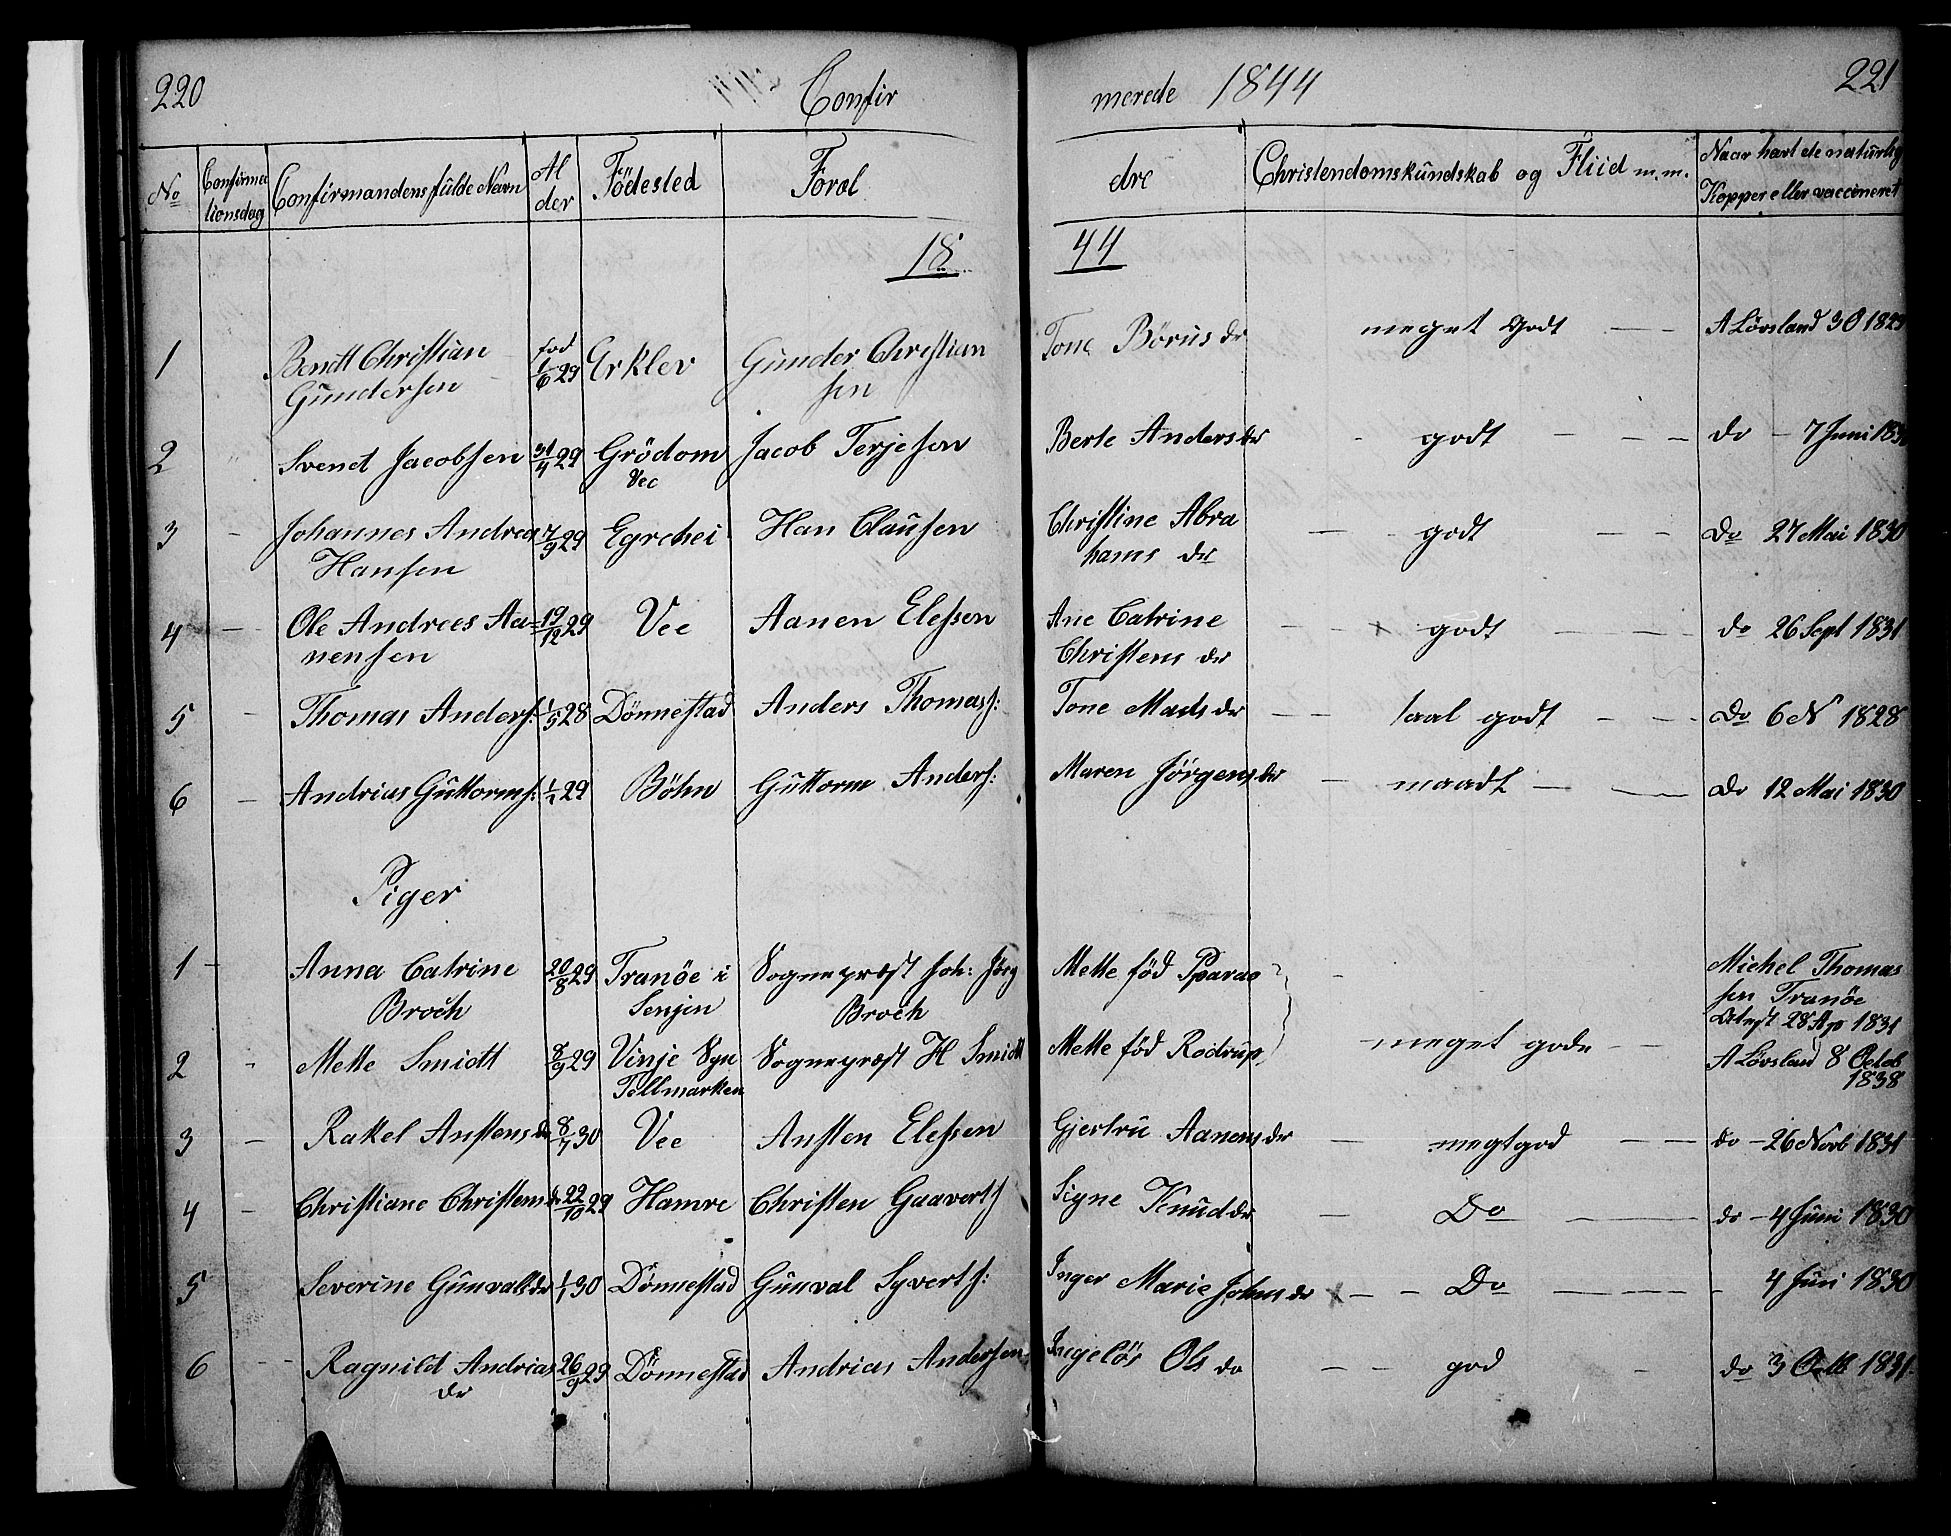 220 Confir merede 1844 221
No Confirma tionsdag Confirmandens fulde Navn Al der Födested Forœl dre Christendomskundskab og Fliid m.m. Naar havt de naturlig Kopper eller vaccineret
18 44
1 Bendt Christian Gundersen fød 1/6 29 Erklev Gunder Christian sen Tone Börus dr meget Godt A Lövsland 30 1829
2 Svend Jacobsen 31/4 29 Grödom Vee Jacob Terjesen Berte Anders dr godt do 7 Juni
3 Johannes Andreas Hansen 7/9 29 Egrehei Han Clausen Christine Abra hams dr godt Do 27 Mai 1830
4 Ole Andrees Aa= nensen 19/12 29 Vee Aanen Elessen Ane Catrine Christens dr godt do 26 Sept 1831
5 Thomas Anders: 1/5 28 Dönnestad Anders Thomass: Tone Mads dr taal godt Do 6 N 1828
6 Andrias Guttorms: 29 Böhn Guttorm Anders: Maren Jörgens dr maadt Do 12 Mai 1830
Piger
1 Anna Catrine Broch 20/8 29 Tranöe i Senjen Sogneprœst Joh: Jörg Broch Mette föd Michel Thomas sen Tranöe Attest 28 Ap 1831
2 Mette Smidt 8/9 29 Vinje Tellmarken Sogneprœst H Smidt Mette föd Rodrup meget gode A Lövsland 8 Octob 1838
3 Rakel Anstens dr 8/7 30 Vee Ansten Elessen Gjertru Aanens dr megt god do 26 Novb 1831
4 Christiane Christens dr 22/10 29 Hamre Christen Gaaverts Signe Knud dr Do do 4 Juni 1830
5 Severine Gunvals dr 1/1 30 Dönnestad Gunval Syverts: Inger Marie Johns dr Do 4 Juni 1830
6 Ragnild Andrias dr 26/9 29 Dönnestad Andrias Andersen Ingelös Ols do god do 3 Octb 1831